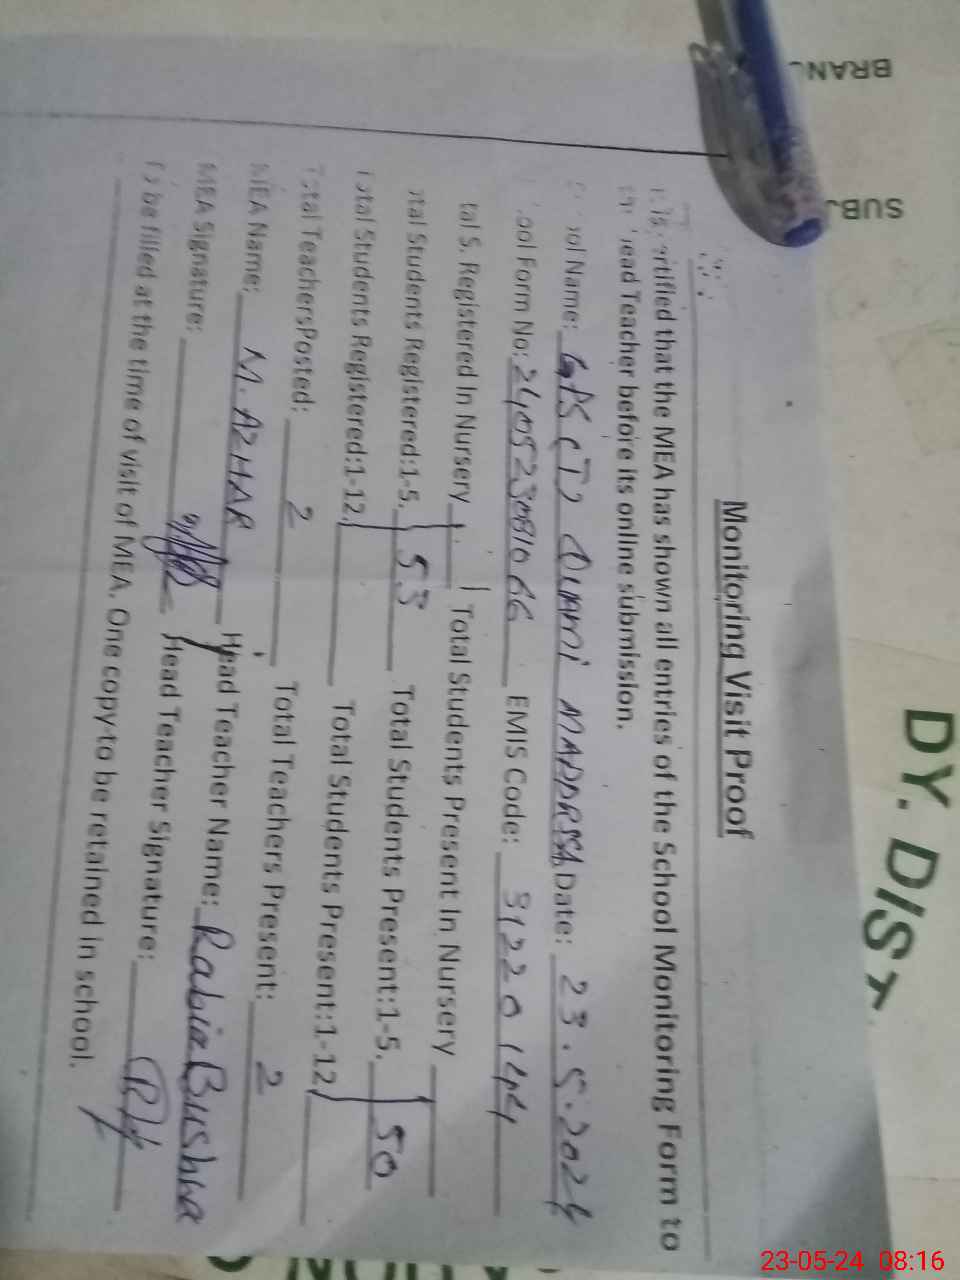 Monitoring Visit Proof
that the MEA has shown all entries of the School Monitoring Form to
Teacher before its online submission.
Name: GPS (T) QUAMI MADDRSSA Date: 23.5.2024
Form No: EMIS Code: 31220144
S. Registered In Nursery Total Students Present In Nursery
Students Registered:1-5. 53 Total Students Present:1-5. 50
Total Students Registered:1-12. Total Students Present:1-12
Total TeachersPosted: 2 Total Teachers Present: 2
MEA Name: M. AZHAR Head Teacher Name: Rabia Bushra
MEA Signature: Head Teacher Signature:
To be filled at the time of visit of MEA. One copy to be retained in school.
BRAN
SUBJ
DY. DIST
23-05-24 08:16